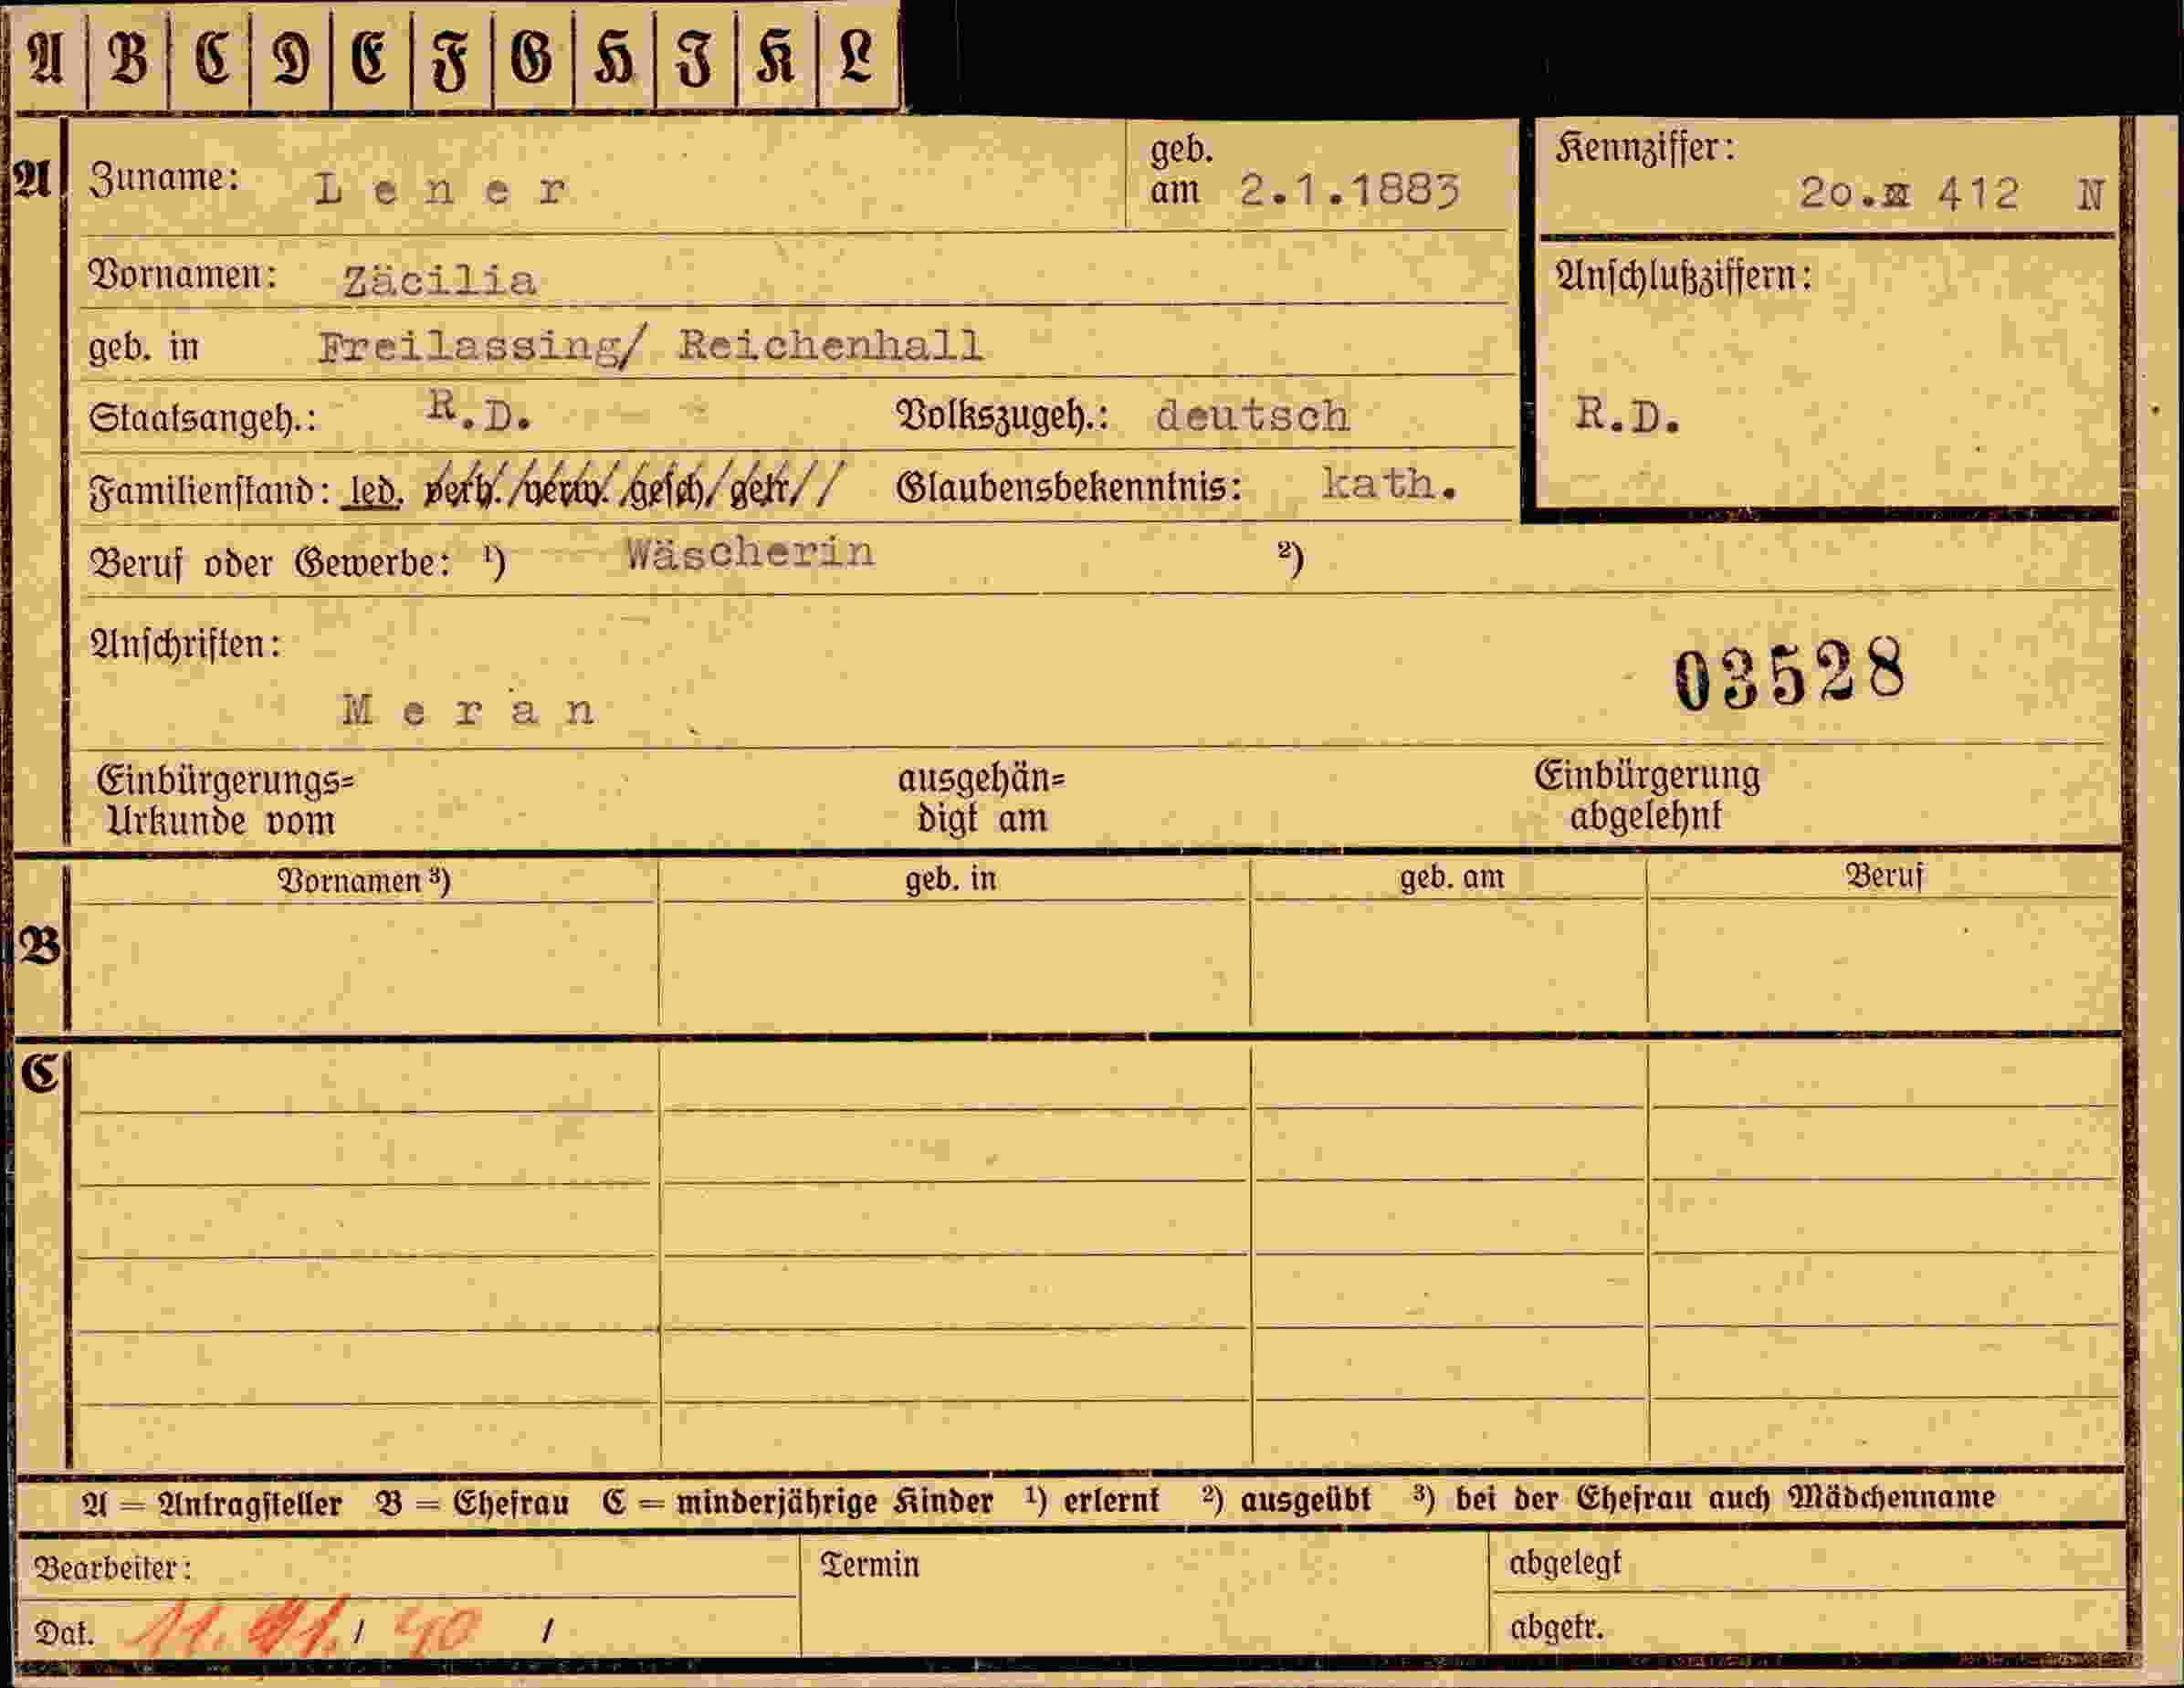 A B C D E F G H J K L
A Zuname: Lener geb. am 2.1.1883
Kennziffer: 20. 412 N
Vornamen: Zäcilia
Anschlußziffern:
geb. in Freilassing/ Reichenhall
Staatsangeh.: R.D. Volkszugeh.: deutsch
R.D.
Familienstand: led. verh. verw. gesch. getr. Glaubensbekenntnis: kath.
Beruf oder Gewerbe: ¹) Wäscherin ²)
Anschriften:
03528
Meran
Einbürgerungs= Urkunde vom ausgehän= digt am Einbürgerung abgelehnt
Vornamen ³) geb. in geb. am Beruf
B
C
A = Antragsteller B = Ehefrau C = minderjährige Kinder ¹) erlernt ²) ausgeübt ³) bei der Ehefrau auch Mädchenname
Bearbeiter: Termin abgelegt
Dat. 11. / 40 / abgetr.